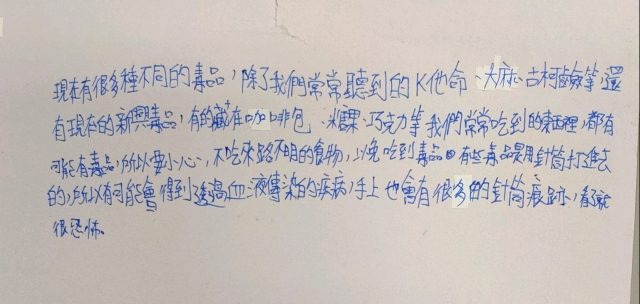 現在有很多種不同的毒品,除了我們常常聽到的K他命、大麻、古柯鹼等,還
有現在的新興毒品,有的藏在咖啡包、糖果、巧克力等我們常常吃到的東西裡,都有
可能有毒品,所以要小心、不吃來路不明的食物,以免吃到毒品。有些毒品是用針筒打進去
的,所以有可能會得到透過血液傳染的疾病,手上也會有很多的針筒痕跡,看了就
很恐怖。